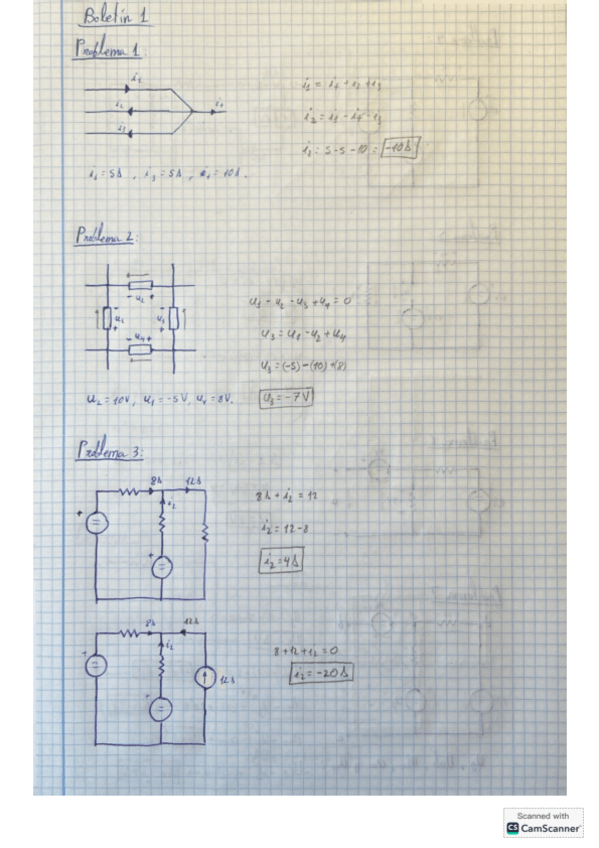 Boletín 1
Problema 1:
i₁
i₂
i₃
i₄
i₁ = i₄ + i₂ + i₃
i₂ = i₁ - i₄ - i₃
i₂ = 5 - 5 - 10 = -10A
i₁ = 5A , i₃ = 5A , i₄ = 10A.
Problema 2:
- u₂ +
u₁
u₃
- u₄ +
u₁ - u₂ - u₃ + u₄ = 0
u₃ = u₁ - u₂ + u₄
u₃ = (-5) - (10) + (8)
u₃ = -7V
u₂ = 10V, u₁ = -5V, u₄ = 8V.
Problema 3:
8A 12A
i₂
8A + i₂ = 12
i₂ = 12 - 8
i₂ = 4A
8A 12A
i₂
12A
8 + 12 + i₂ = 0
i₂ = -20A
Scanned with
CS CamScanner